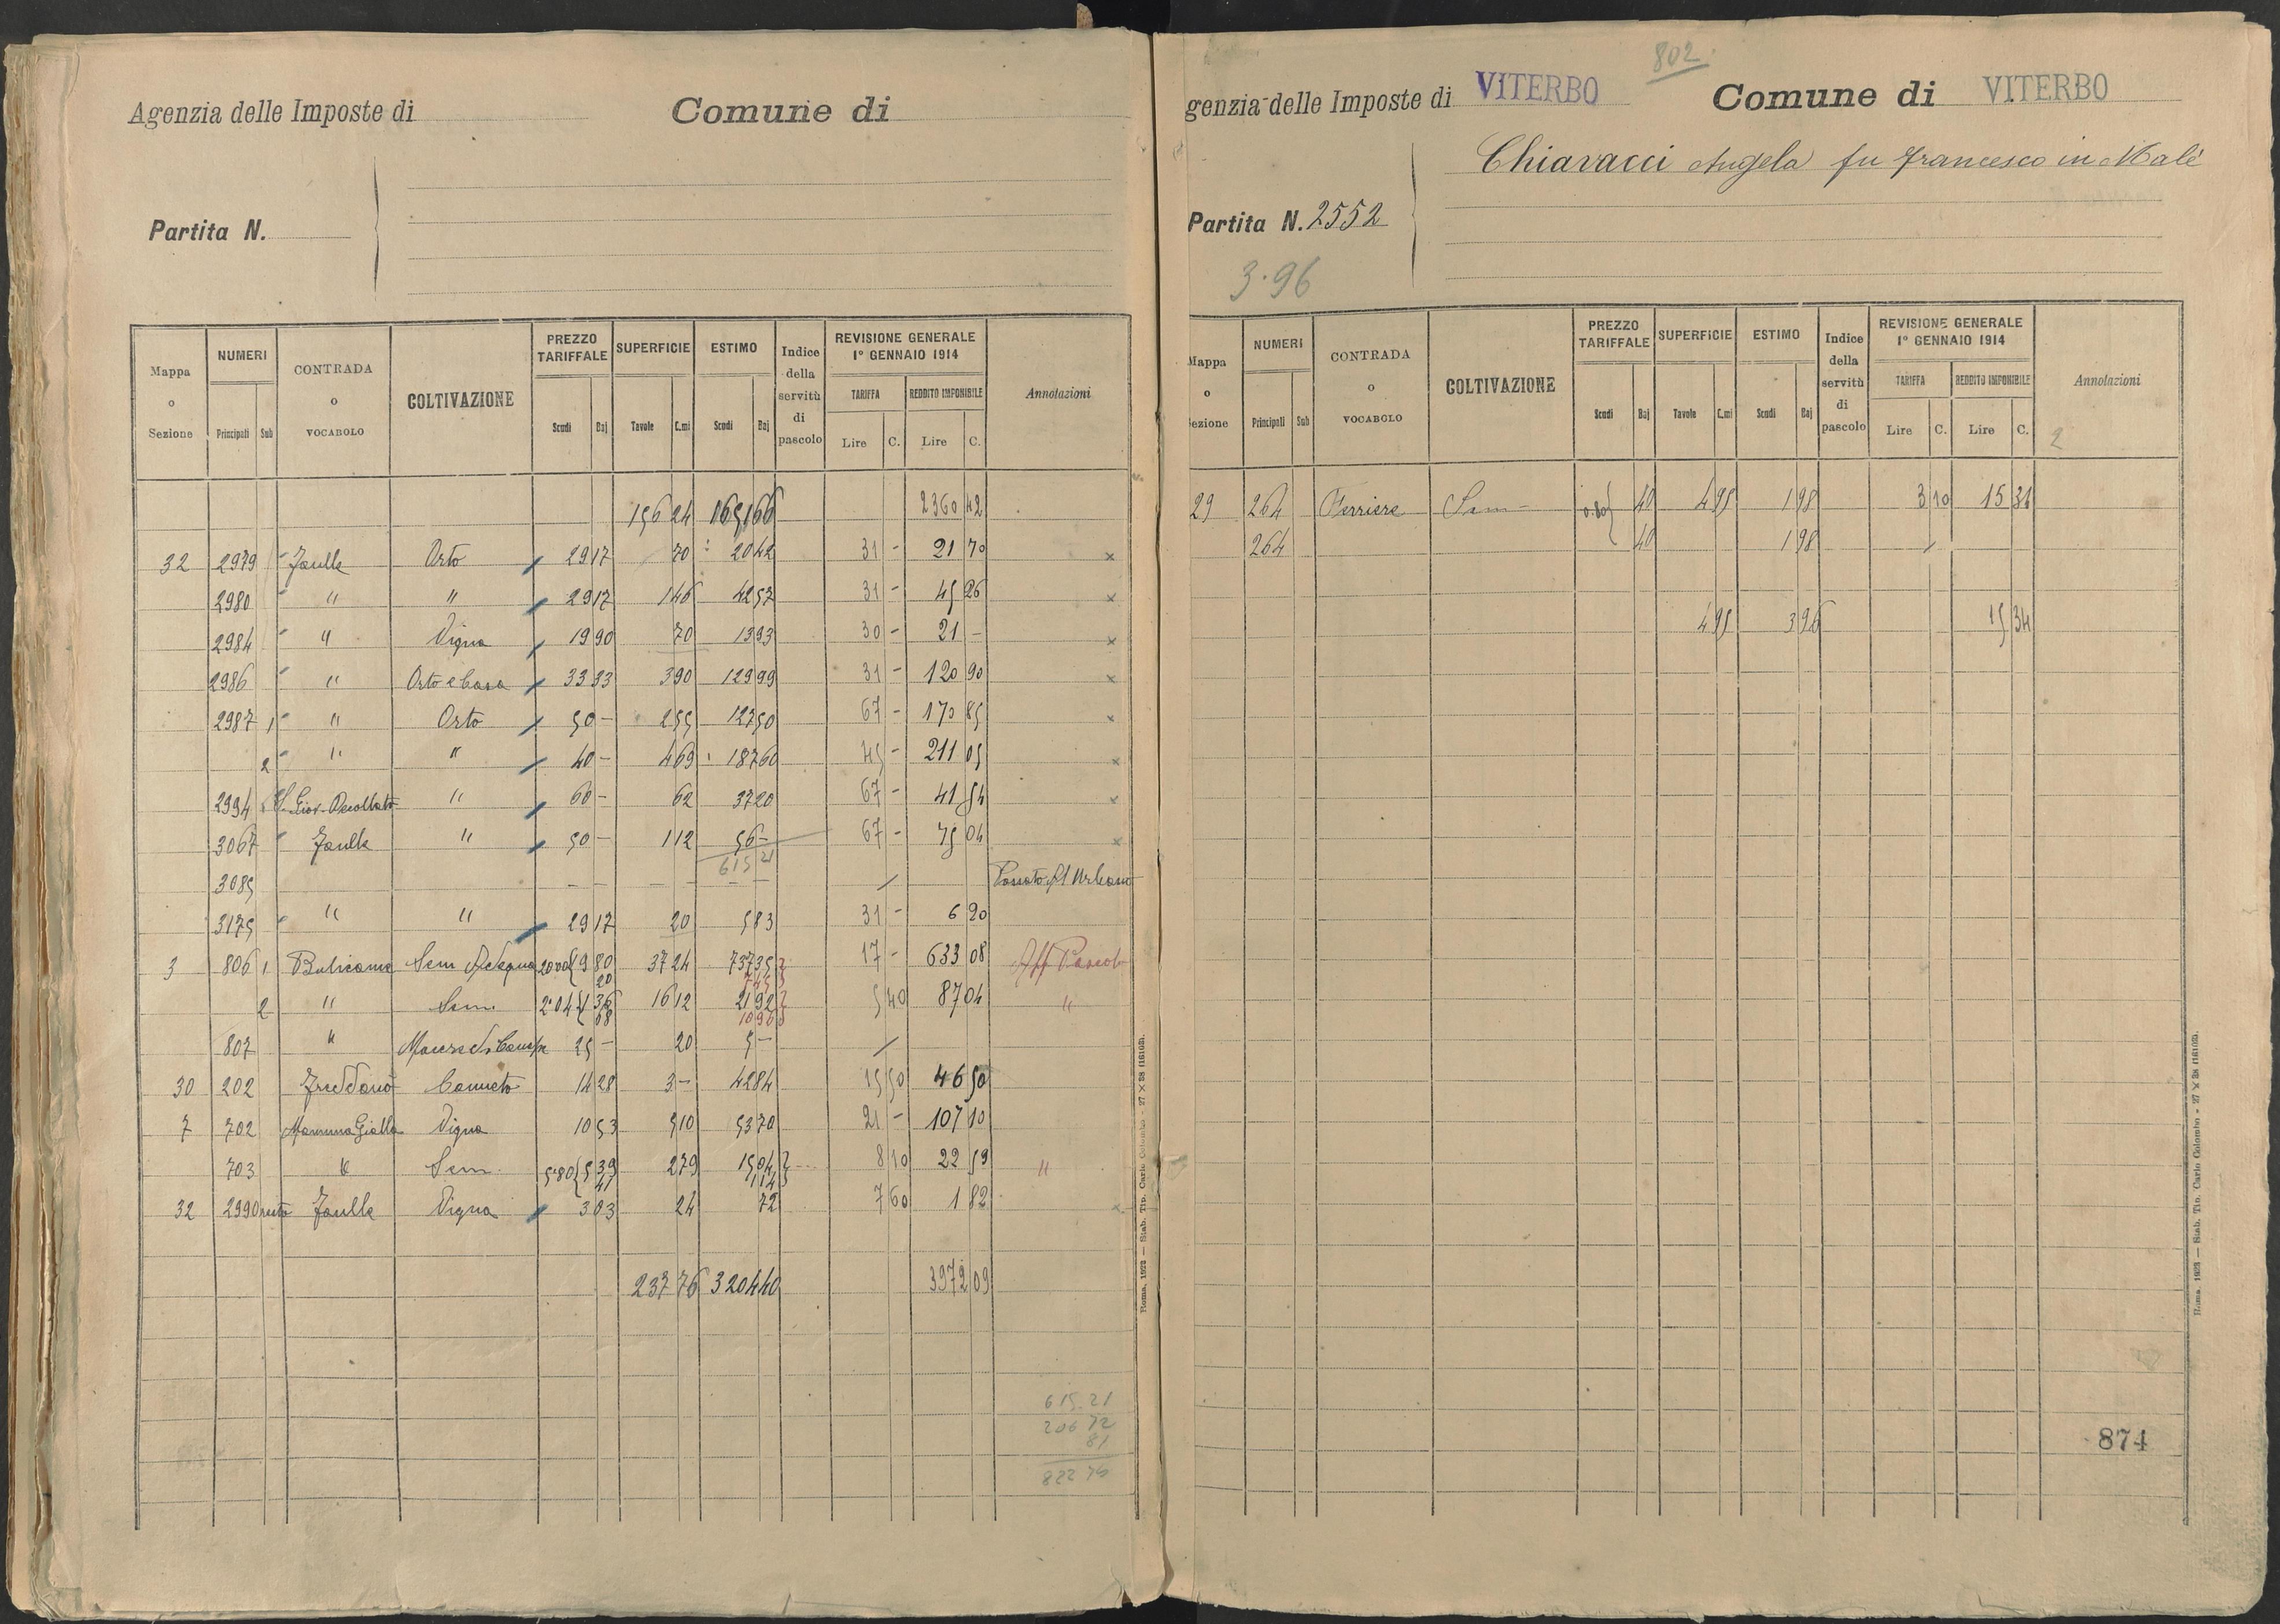 Agenzia delle Imposte di
Comune di
Partita N.
Mappa o Sezione | NUMERI Principali Sub | CONTRADA o VOCABOLO | COLTIVAZIONE | PREZZO TARIFFALE Scudi Baj | SUPERFICIE Tavole C.mi | ESTIMO Scudi Baj | Indice della servitù di pascolo | REVISIONE GENERALE 1° GENNAIO 1914 TARIFFA Lire C. REDDITO IMPONIBILE Lire C. | Annotazioni
156 24 1651 66 2360 42
32 2979 Faulle Orto 29 17 70 20 42 31 - 21 70 ×
2980 " " 29 17 1 46 42 57 31 - 45 26 ×
2984 " Vigna 19 90 70 13 93 30 - 21 - ×
2986 " Orto e Casa 33 33 3 90 129 99 31 - 120 90 ×
2987 1 " Orto 50 - 2 55 127 50 67 - 170 85 ×
2 " " 40 - 4 69 187 60 45 - 211 05 ×
2994 S. Giov. Decollato " 60 - 62 37 20 67 - 41 54 ×
3067 Faulle " 50 - 1 12 56 - 67 - 75 04 ×
615 21
3085 - - - - - - Passato al Urbano
3175 " " 29 17 20 5 83 31 - 6 20
3 806 1 Bulicame Sem 20 00 { 19 80 37 24 737 35 17 - 633 08 Aff Pascolo
20 7 45
2 " Sem. 2 04 { 1 36 16 12 21 92 5 40 87 04 "
68 10 96
807 " Macera di Canapa 25 - 20 5 -
30 202 Freddano Canneto 14 28 3 - 42 84 15 50 46 50
7 702 Mamma Gialla Vigna 10 53 5 10 53 70 21 - 107 10
703 " Sem. 5 80 { 5 39 2 79 15 04 8 10 22 59 "
41 1 14
32 2990 resto Faulle Vigna 3 03 24 72 7 60 1 82 ×
237 76 3204 40 3972 09
615.21
206 72
81
822 76
Roma, 1922 — Stab. Tip. Carlo Colombo - 27 × 38 (16103).
802
genzia delle Imposte di VITERBO
Comune di VITERBO
Chiavacci Angela fu Francesco in Malè
Partita N. 2552
3.96
Mappa o ezione | NUMERI Principali Sub | CONTRADA o VOCABOLO | COLTIVAZIONE | PREZZO TARIFFALE Scudi Baj | SUPERFICIE Tavole C.mi | ESTIMO Scudi Baj | Indice della servitù di pascolo | REVISIONE GENERALE 1° GENNAIO 1914 TARIFFA Lire C. REDDITO IMPONIBILE Lire C. | Annotazioni
2
29 264 Ferriere Sem 0.80 { 40 4 95 1 98 3 10 15 34
264 40 1 98
4 95 3 96 15 34
874
Roma, 1923 — Stab. Tip. Carlo Colombo - 27 × 38 (16103).